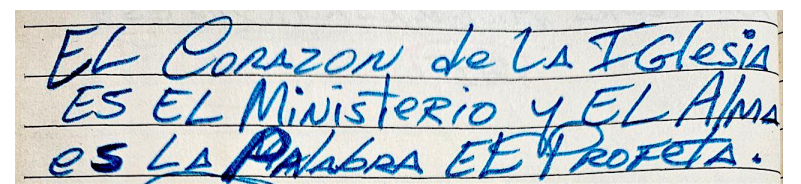 EL CORAZON de LA IGlesia
ES EL MiNisterio y EL AlMA
es LA PAlAbRA EE PROFeTA.